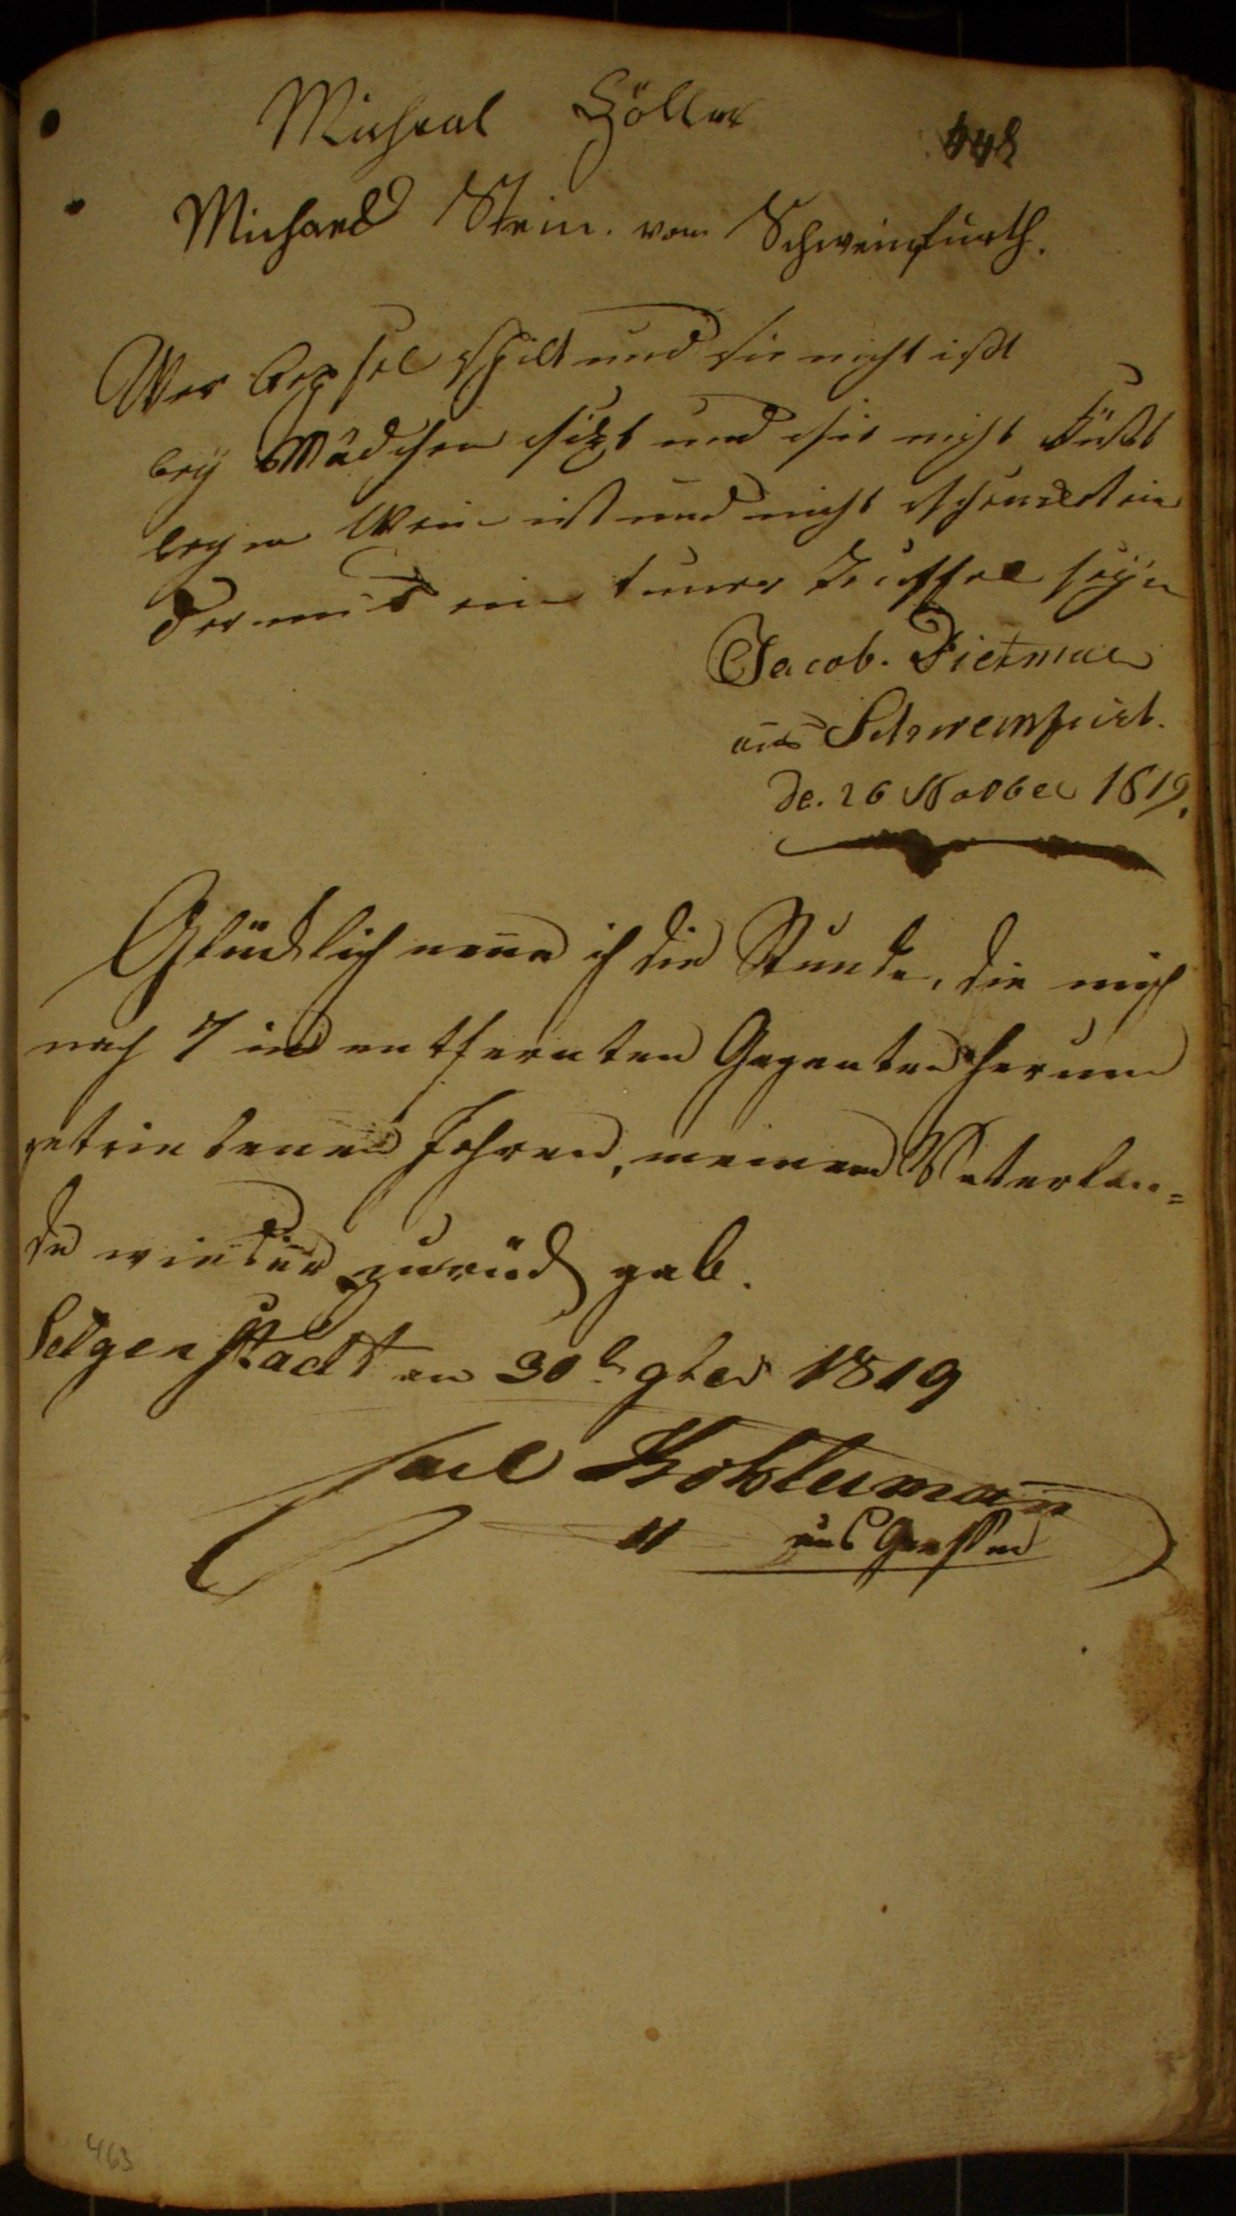 Michael Höller
448
Michael Stein. von Schweinfurth.
Wer Aepfel schilt und sie nicht ist
bey Mädchen sizt und sie nicht küßt
beym Wein ist und nicht schenckt ein
der muß ein tumer Teuffel seyn
Jacob. Dietmar
aus Schweinfurt.
de. 26 Novber 1819.
Glücklich nene ich die Stunde, die mich
nach 7 in entfernten Gegenten herum
getriebenen Jahren, meinem Vaterlan=
de wieder zurück gab.
Selgenstadt en 30t 9ber 1819
Carl
aus Giessen
463